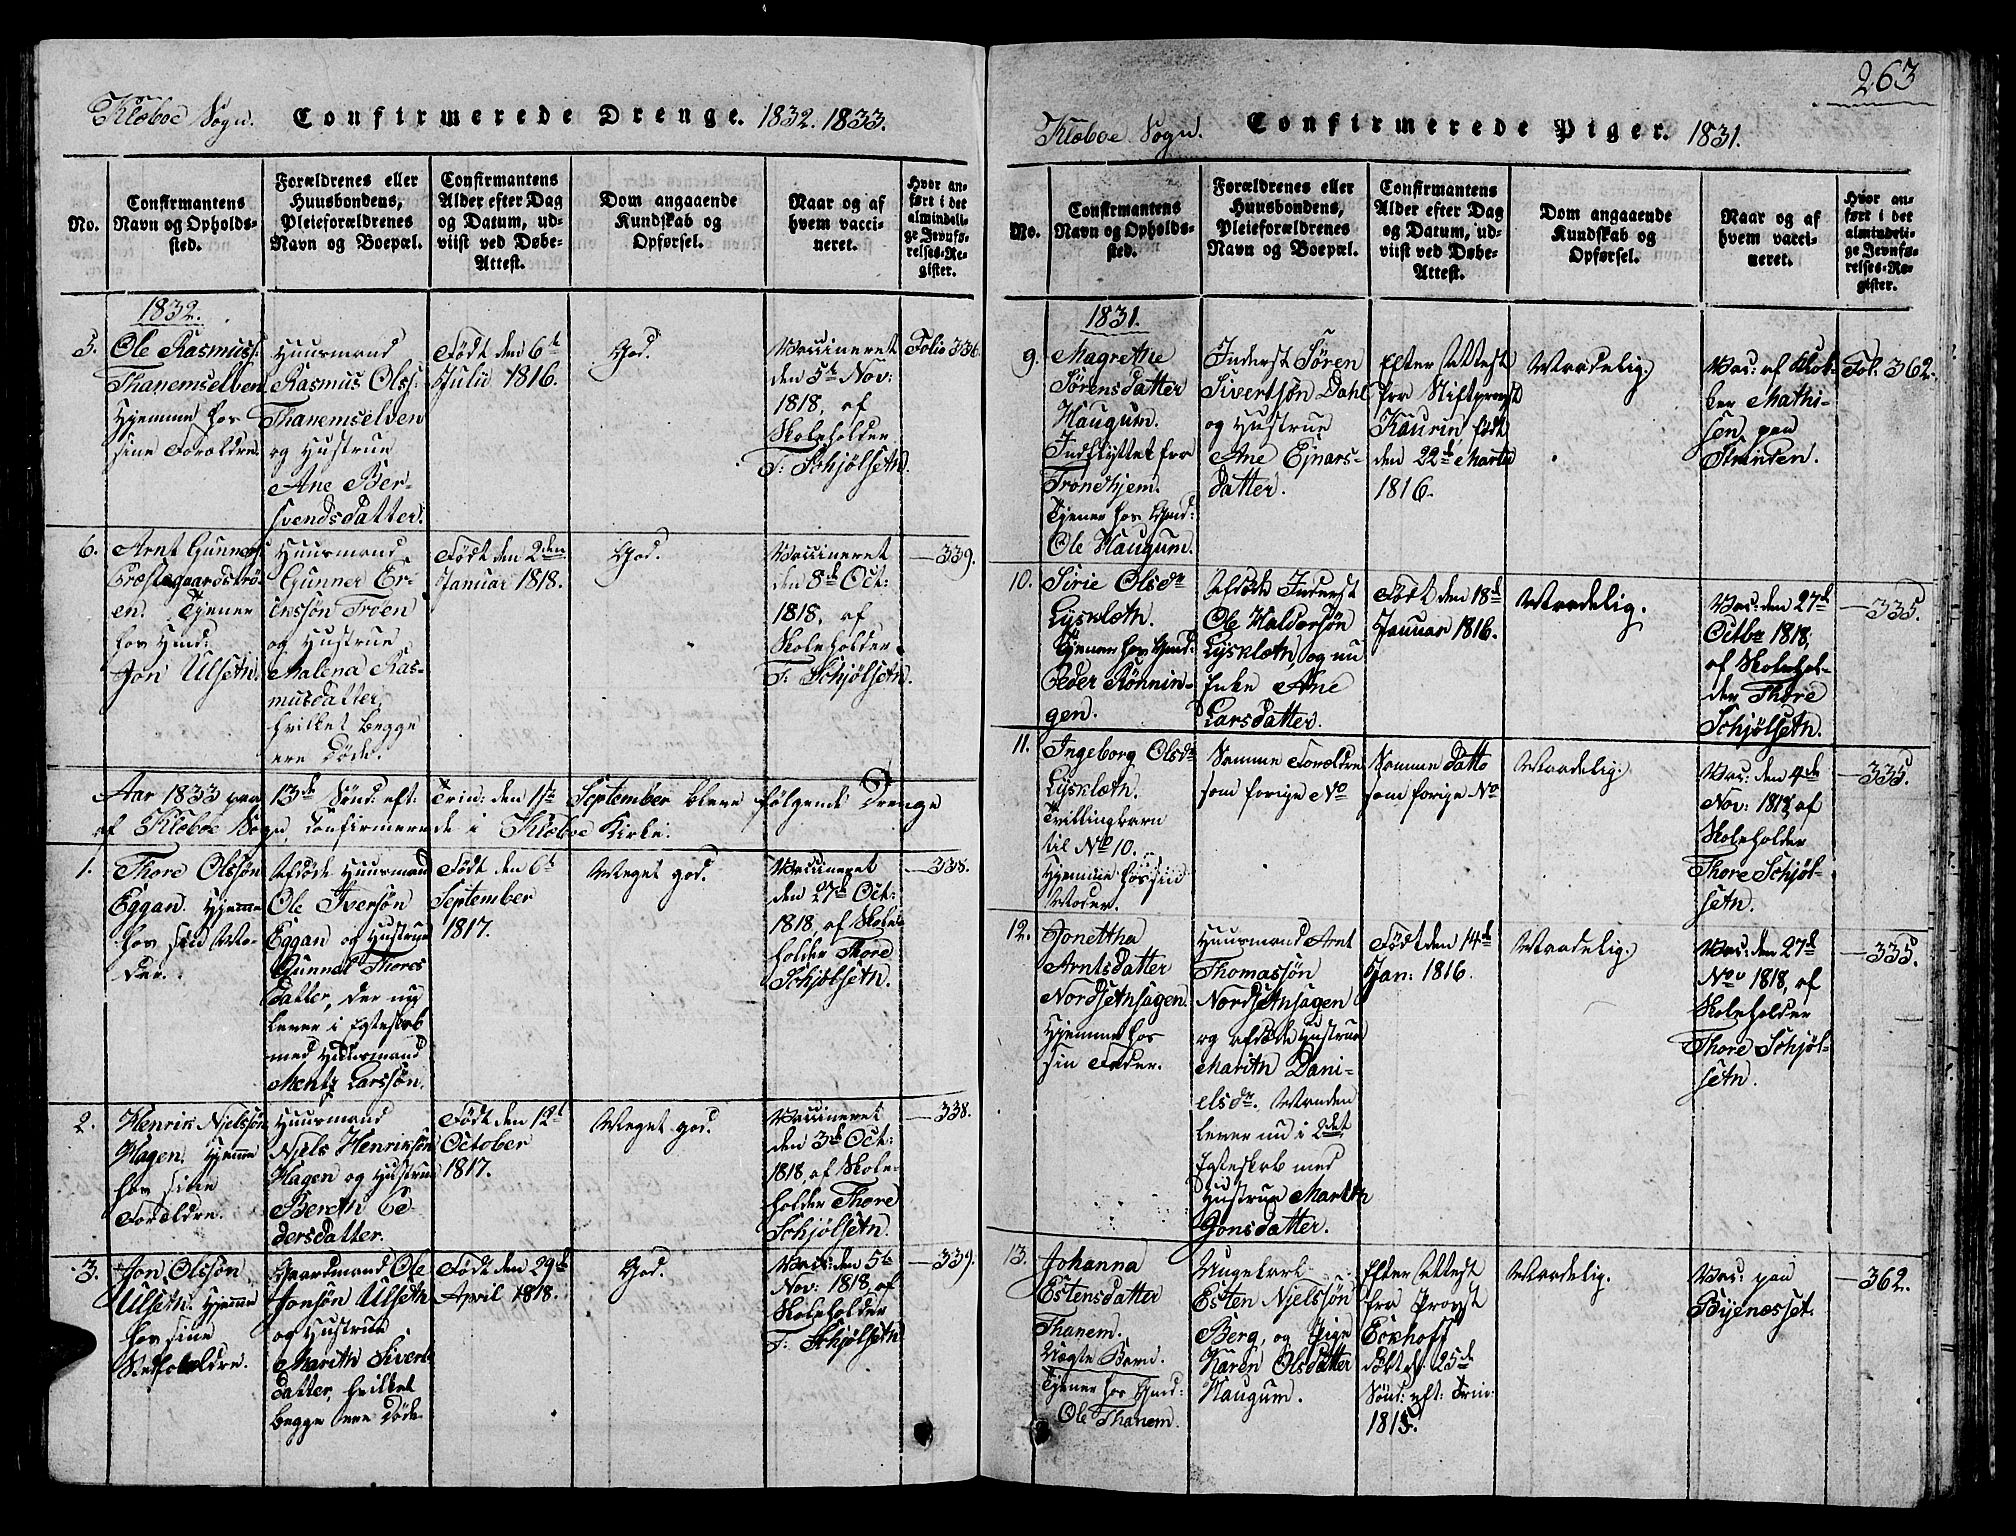 Klæboe Sogn. Confirmerede Drenge. 1832. 1833.
No.
Confirmantens
Navn og Opholds-
sted.
Forældrenes eller
Huusbondens,
Pleieforældrenes
Navn og Boepæl.
Confirmantens
Alder efter Dag
og Datum, ud-
viist ved Døbe-
Attest.
Dom angaaende
Kundskab og
Opførsel.
Naar og af
hvem vacci-
neret.
Hvor an-
ført i det
almindeli-
ge Jevnfø-
relses-Re-
gister.
1832.
5.
Ole Rasmuss:
Thanemselven
Hjemme hos
sine Forældre.
Huusmand
Rasmus Olss:
Thanemselven
og Hustrue
Ane Ber-
svendsdatter.
Født den 6te
Julii 1816.
God.
Vaccineret
den 5te Nov:
1818, af
Skoleholder
T: Schjølseth.
Folio 336.
6.
Arnt Gunners:
Præstegaardstrø-
en. Tjener
hos Gmd:
Jon Ulseth.
Huusmand
Gunner Er-
iksøn Trøen
og Hustrue
Malena Ras-
musdatter,
hvilket begge
ere døde.
Født den 2den
Januar 1818.
God.
Vaccineret
den 8de Oct:
1818, af
Skoleholder
T: Schjølseth.
—339.
Aar 1833 paa 13de Sønd: eft: Trin: den 1ste September bleve følgende Drenge
af Klæboe Sogn, Confirmerede i Klæboe Kirke.
1.
Thore Olssøn
Eggan. Hjemme
hos sin Mo-
der.
Afdøde Huusmand
Ole Iversøn
Eggan og Hustrue
Gunnel Thores
datter, der nu
lever i Egteskab
med Huusmand
Mentz Larssøn.
Født den 6te
September
1817.
Meget god.
Vaccineret
den 27de Oct:
1818, af Skole-
holder Thore
Schjølseth.
—338.
2.
Henrik Njelssøn
Hagen. Hjemme
hos sine
Forældre.
Huusmand
Njels Henriksøn
Hagen og Hustrue
Bereth Pe
dersdatter.
Født den 12te
October
1817.
Meget god.
Vaccineret
den 3de Oct:
1818, af Skole-
holder Thore
Schjølseth.
—338.
3.
Jon Olssøn
Ulseth. Hjemme
hos sine
Gaardmand Ole
Jonsøn Ulseth
og Hustrue
Marith Siverts
datter, hvilket
begge ere døde.
Født den 29de
April 1818.
God.
Vacc: den 5te
Nov: 1818, af
Skoleholder
T: Schjølseth
—339.
263
Klæboe Sogn. Confirmerede Piger. 1831.
No.
Confirmantens
Navn og Opholds-
sted.
Forældrenes eller
Huusbondens,
Pleieforældrenes
Navn og Boepæl.
Confirmantens
Alder efter Dag
og Datum, ud-
viist ved Døbe-
Attest.
Dom angaaende
Kundskab og
Opførsel.
Naar og af
hvem vacci-
neret.
Hvor an-
ført i det
almindeli-
ge Jevnfø-
relses-Re-
gister.
1831.
9.
Magrethe
Sørensdatter
Haugum.
Indflyttet fra
Trondhjem.
Tjener hos Gmd:
Ole Haugum.
Inderst Søren
Sivertsøn Dahl
og Hustrue
Ane Ejnars-
datter.
Efter Attest
fra Stiftprovst
Kaurin født
den 22de Marts
1816.
Maadelig.
Vac: af Klok-
ker Mathi-
sen paa
Strinden.
Fol. 362.
10.
Sirie Olsdr
Lysklæth.
Tjener hos Gmd:
Peder Rønnin-
gen.
Afdøde Inderst
Ole Haldorsøn
Lysklæth, og nu
Enke Ane
Larsdatter.
Født den 18de
Januar 1816.
Maadelig.
Vac: den 27de
Octbr 1818,
af Skolehol-
der Thore
Schjølseth.
—335.
11.
Ingeborg Olsdr
Lysklæth.
Tvillingbarn
til No 10.
Hjemme hos sin
Moder.
Samme Forældre
som forige No
Samme Datto
som forige No
Maadelig.
Vac: den 4de
Nov: 1818, af
Skoleholder
Thore Schjøl-
seth.
—335.
12.
Jonettha
Arntsdatter
Nordsethsagen.
Hjemme hos
sin Fader.
Huusmand Arnt
Thomassøn
Nordsethsagen
og afdøde Hustrue
Marith Dani-
elsdr. Manden
lever nu i 2det
Egteskab med
Hustrue Marith
Jonsdatter.
Født den 14de
Jan: 1816.
Maadelig.
Vac: den 27de
Nov 1818, af
Skoleholder
Thore Schjøl-
seth.
—335.
13.
Johanna
Estensdatter
Thanem.
Uægte Barn.
Tjener hos Gmd:
Ole Thanem.
Ungekarl
Esten Njelssøn
Berg, og Pige
Karen Olsdatter
Haugum.
Efter Attest
fra Provst
Eckhoff
døbt d: 25de
Sønd: eft: Trin:
1815.
Maadelig.
Vac: paa
Byenæsset.
—362.